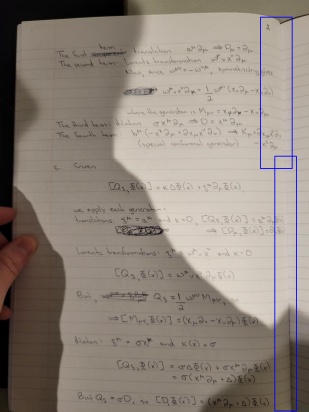 2
The first term: translation a^μ ∂_μ ⇒ P_μ = ∂_μ
The second term: Lorentz transformation ω^μ_ν x^ν ∂_μ
Now, since ω^{μν} = -ω^{νμ},
= 1/2 ω^{μν} (x_ν ∂_μ - x_μ ∂_ν)
where the generator is M_{μν} = x_μ ∂_ν - x_ν ∂_μ
The third term: dilation σ x^μ ∂_μ ⇒ D = x^μ ∂_μ
The fourth term:
(special conformal generator)
Given
[Q_ξ, Φ(x)] = κ Δ Φ(x) + ξ^μ ∂_μ Φ(x)
we apply each generator:
translations: ξ^μ = a^μ and κ = 0, [Q_ξ, Φ(x)] = a^μ ∂_μ Φ(x)
⇒ [P_μ, Φ(x)] = ∂_μ Φ(x)
Lorentz transformations: ξ^μ = ω^μ_ν x^ν and κ = 0
[Q_ξ, Φ(x)] = ω^μ_ν x^ν ∂_μ Φ(x)
But, Q_ξ = 1/2 ω^{μν} M_{μν},
⇒ [M_{μν}, Φ(x)] = (x_μ ∂_ν - x_ν ∂_μ) Φ(x)
dilation: ξ^μ = σ x^μ and κ(x) = σ
[Q_ξ, Φ(x)] = σ Δ Φ(x) + σ x^μ ∂_μ Φ(x)
= σ (x^μ ∂_μ + Δ) Φ(x)
But Q_ξ = σ D, so [D, Φ(x)] = (x^μ ∂_μ + Δ) Φ(x)